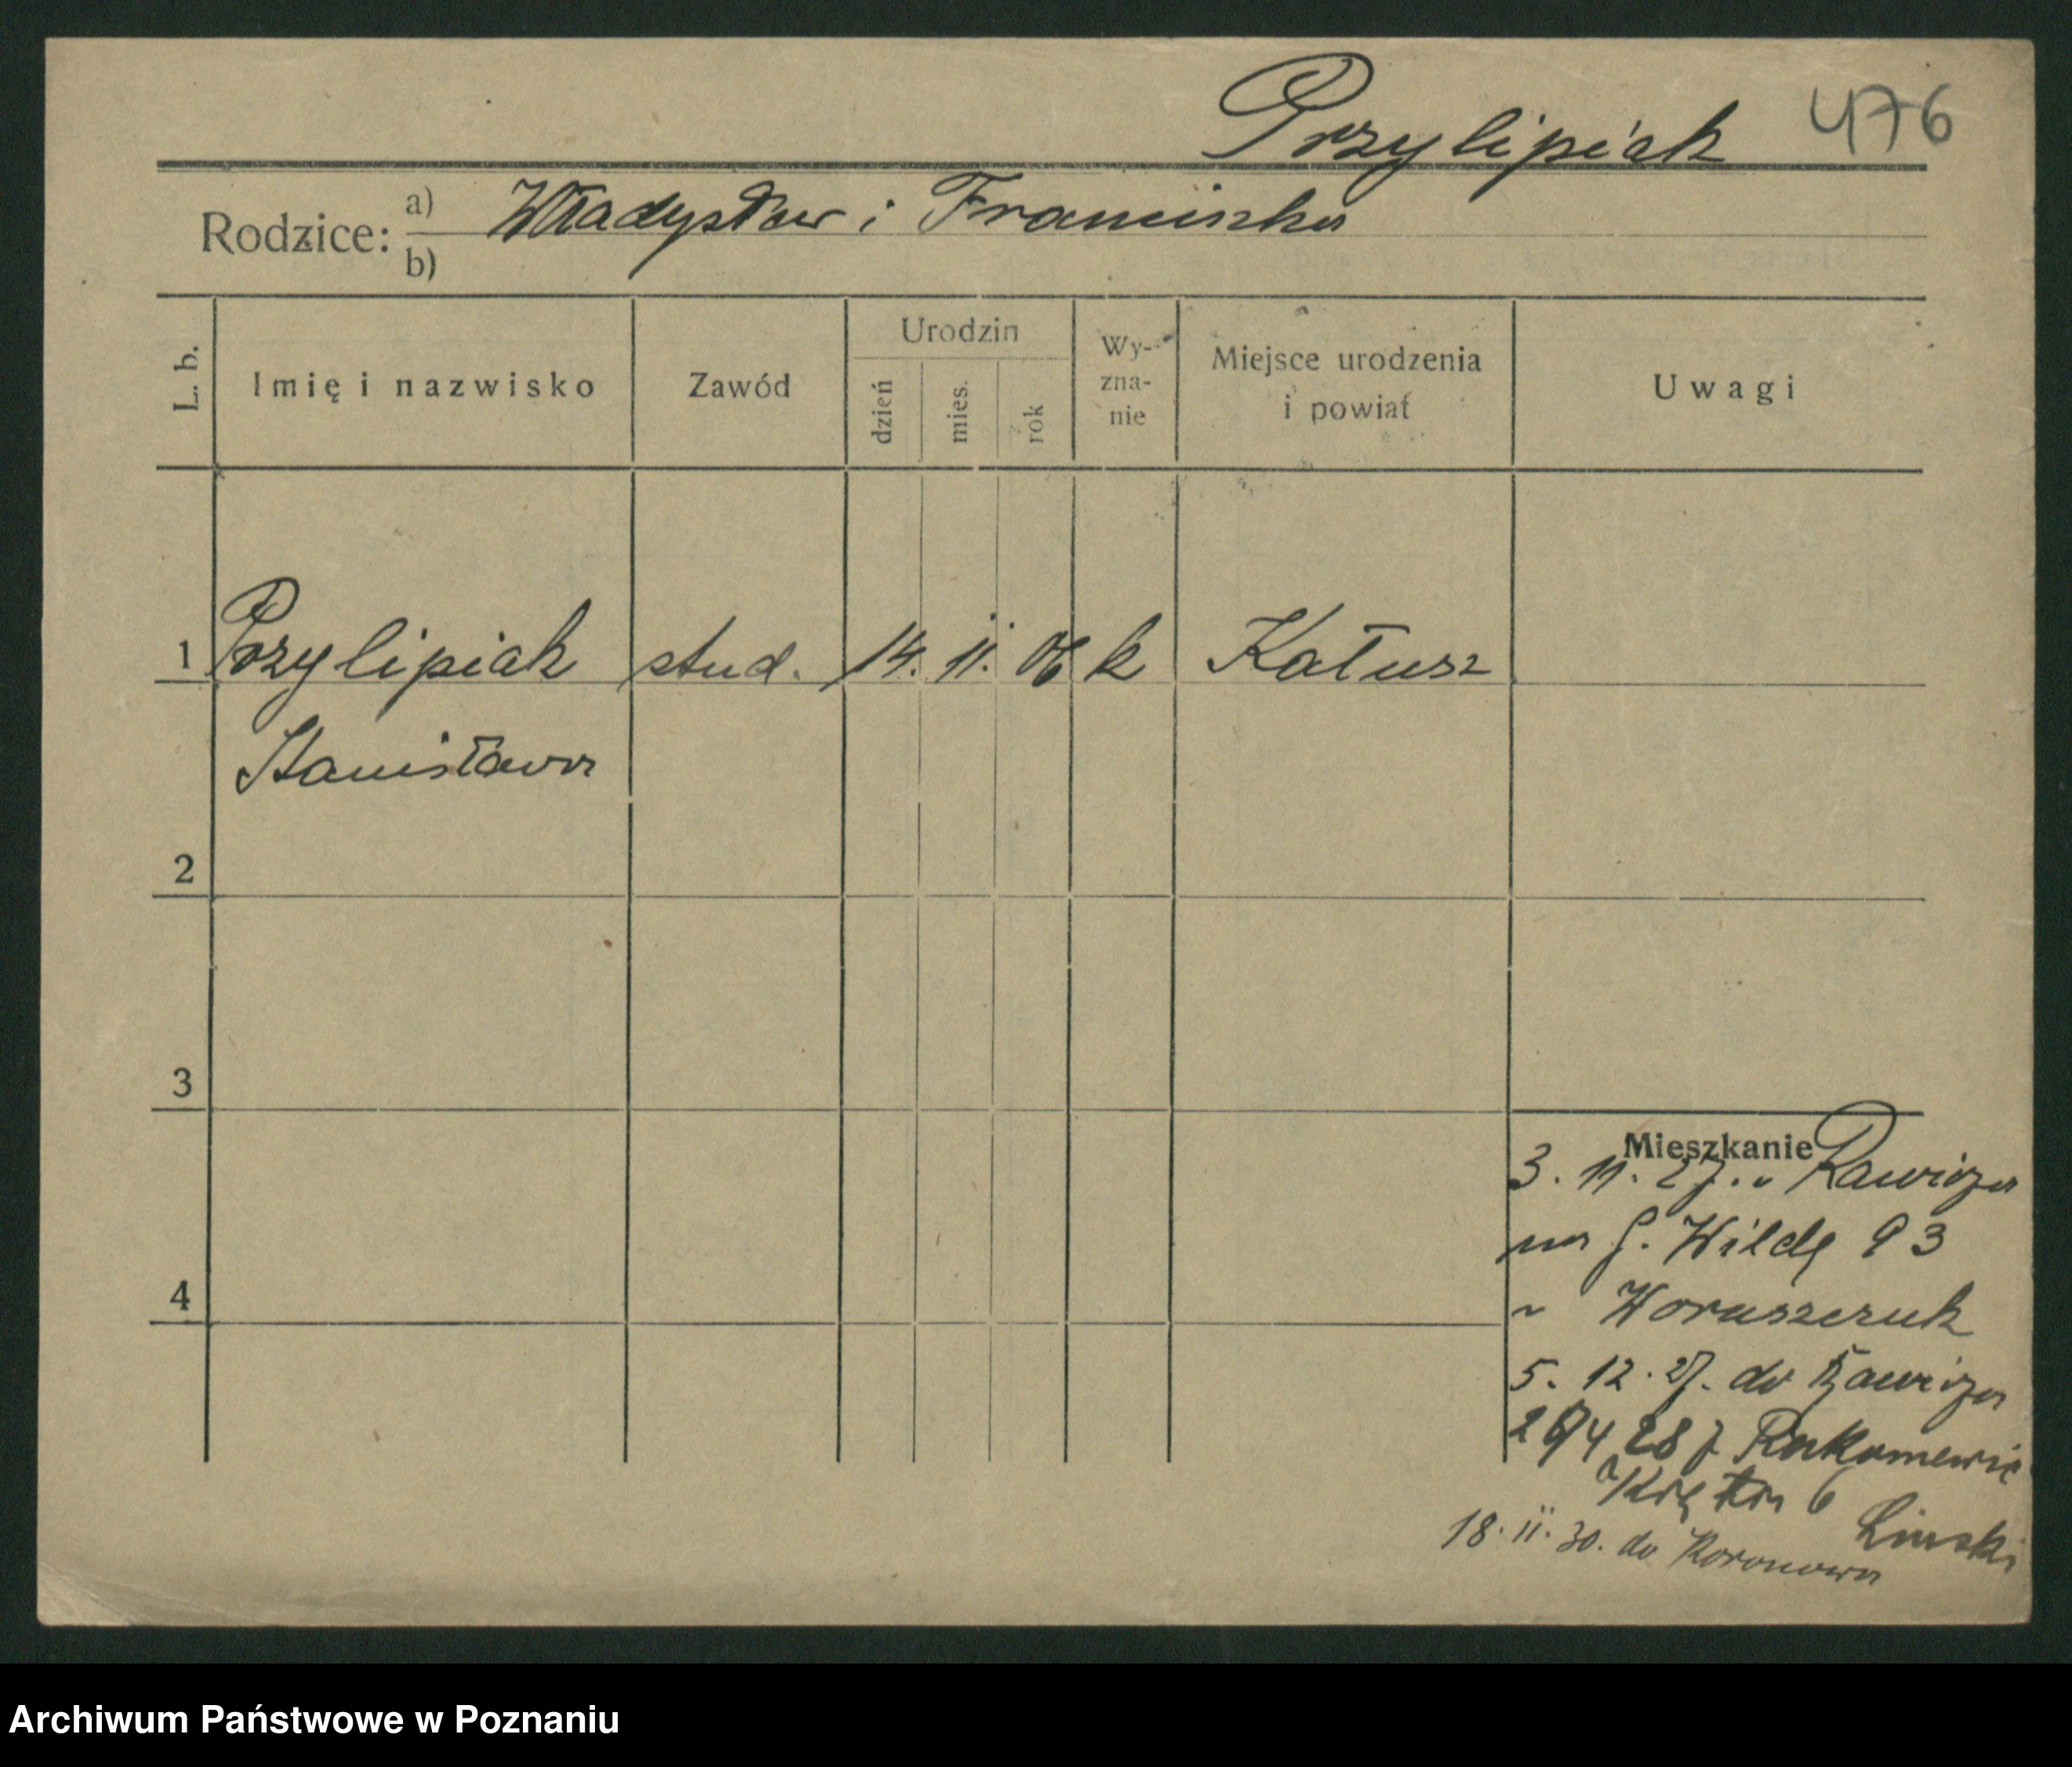 Przylipiak 476
Rodzice: a) Władysław i Franciszka
b)
L. b. Imię i nazwisko Zawód Urodzin dzień mies. rok Wy-zna-nie Miejsce urodzenia i powiat Uwagi
1 Przylipiak stud. 14. 11. 06 k Kałusz
Stanisława
2
3
4
Mieszkanie
3. 11. 27. Rawicza
na G. Wildę 93
5. 12. 27. do Rawicza
28
6
Linski
18. II. 30. do Koronowa
Archiwum Państwowe w Poznaniu